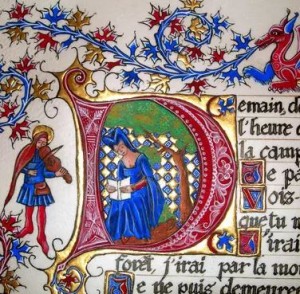 Demain, de
l'heure
la camp
Je pa
Vois
que tu m
J'irai
forêt, j'irai par la mo
Je ne puis demeure